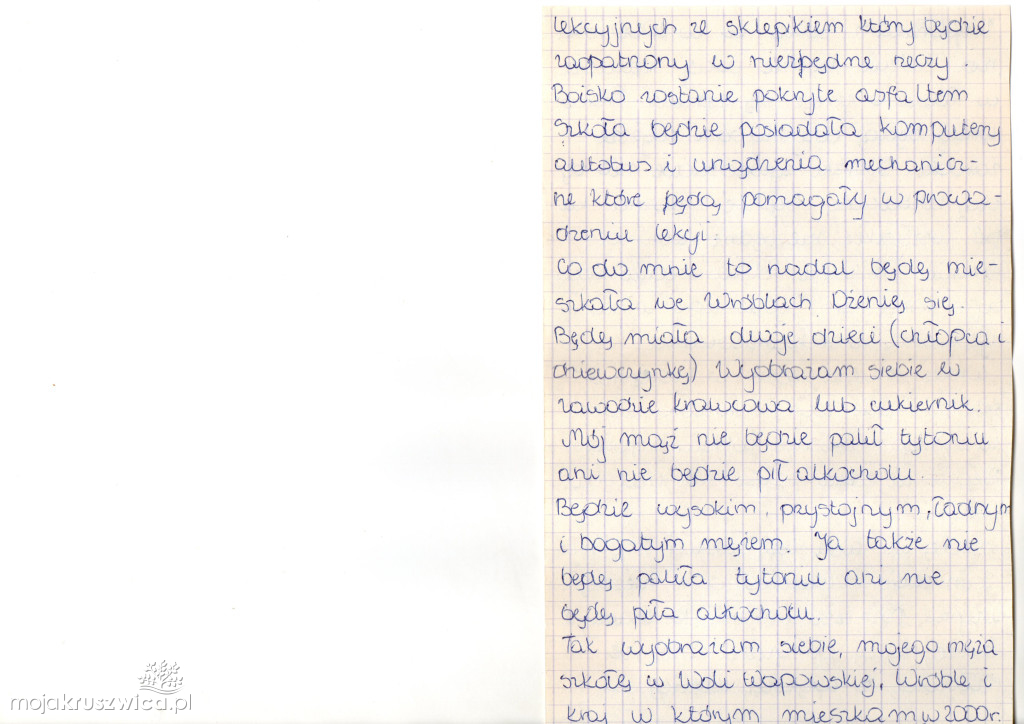 lekcyjnych ze sklepikiem który będzie
zaopatrzony w niezpędne rzeczy.
Boisko zostanie pokryte asfaltem
Szkoła będzie posiadała komputery
autobus i urządzenia mechanicz-
ne które będą pomagały w prowa-
dzeniu lekcji.
Co do mnie to nadal będę mie-
szkała we Wróblach Dżenię się.
Będę miała dwoje dzieci (chłopca i
dziewczynkę) Wyobrażam siebie w
zawodzie krawcowa lub cukiernik.
Mój mąż nie będzie palił tytoniu
ani nie będzie pił alkocholu.
Będzie wysokim, przystojnym, ładnym
i bogatym mężem. Ja także nie
będę paliła tytoniu ani nie
będę piła alkocholu.
Tak wyobrażam siebie, mojego męża
szkołę w Woli Wapowskiej, Wróble i
kraj w którym mieszkam w 2000r.
mojakruszwica.pl